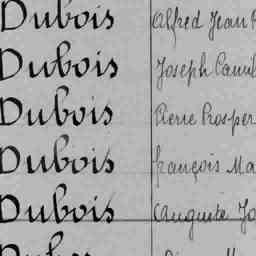 Dubois Alfred Jean
Dubois Joseph Camil
Dubois Pierre Prosper
Dubois françois Ma
Dubois Auguste Jo